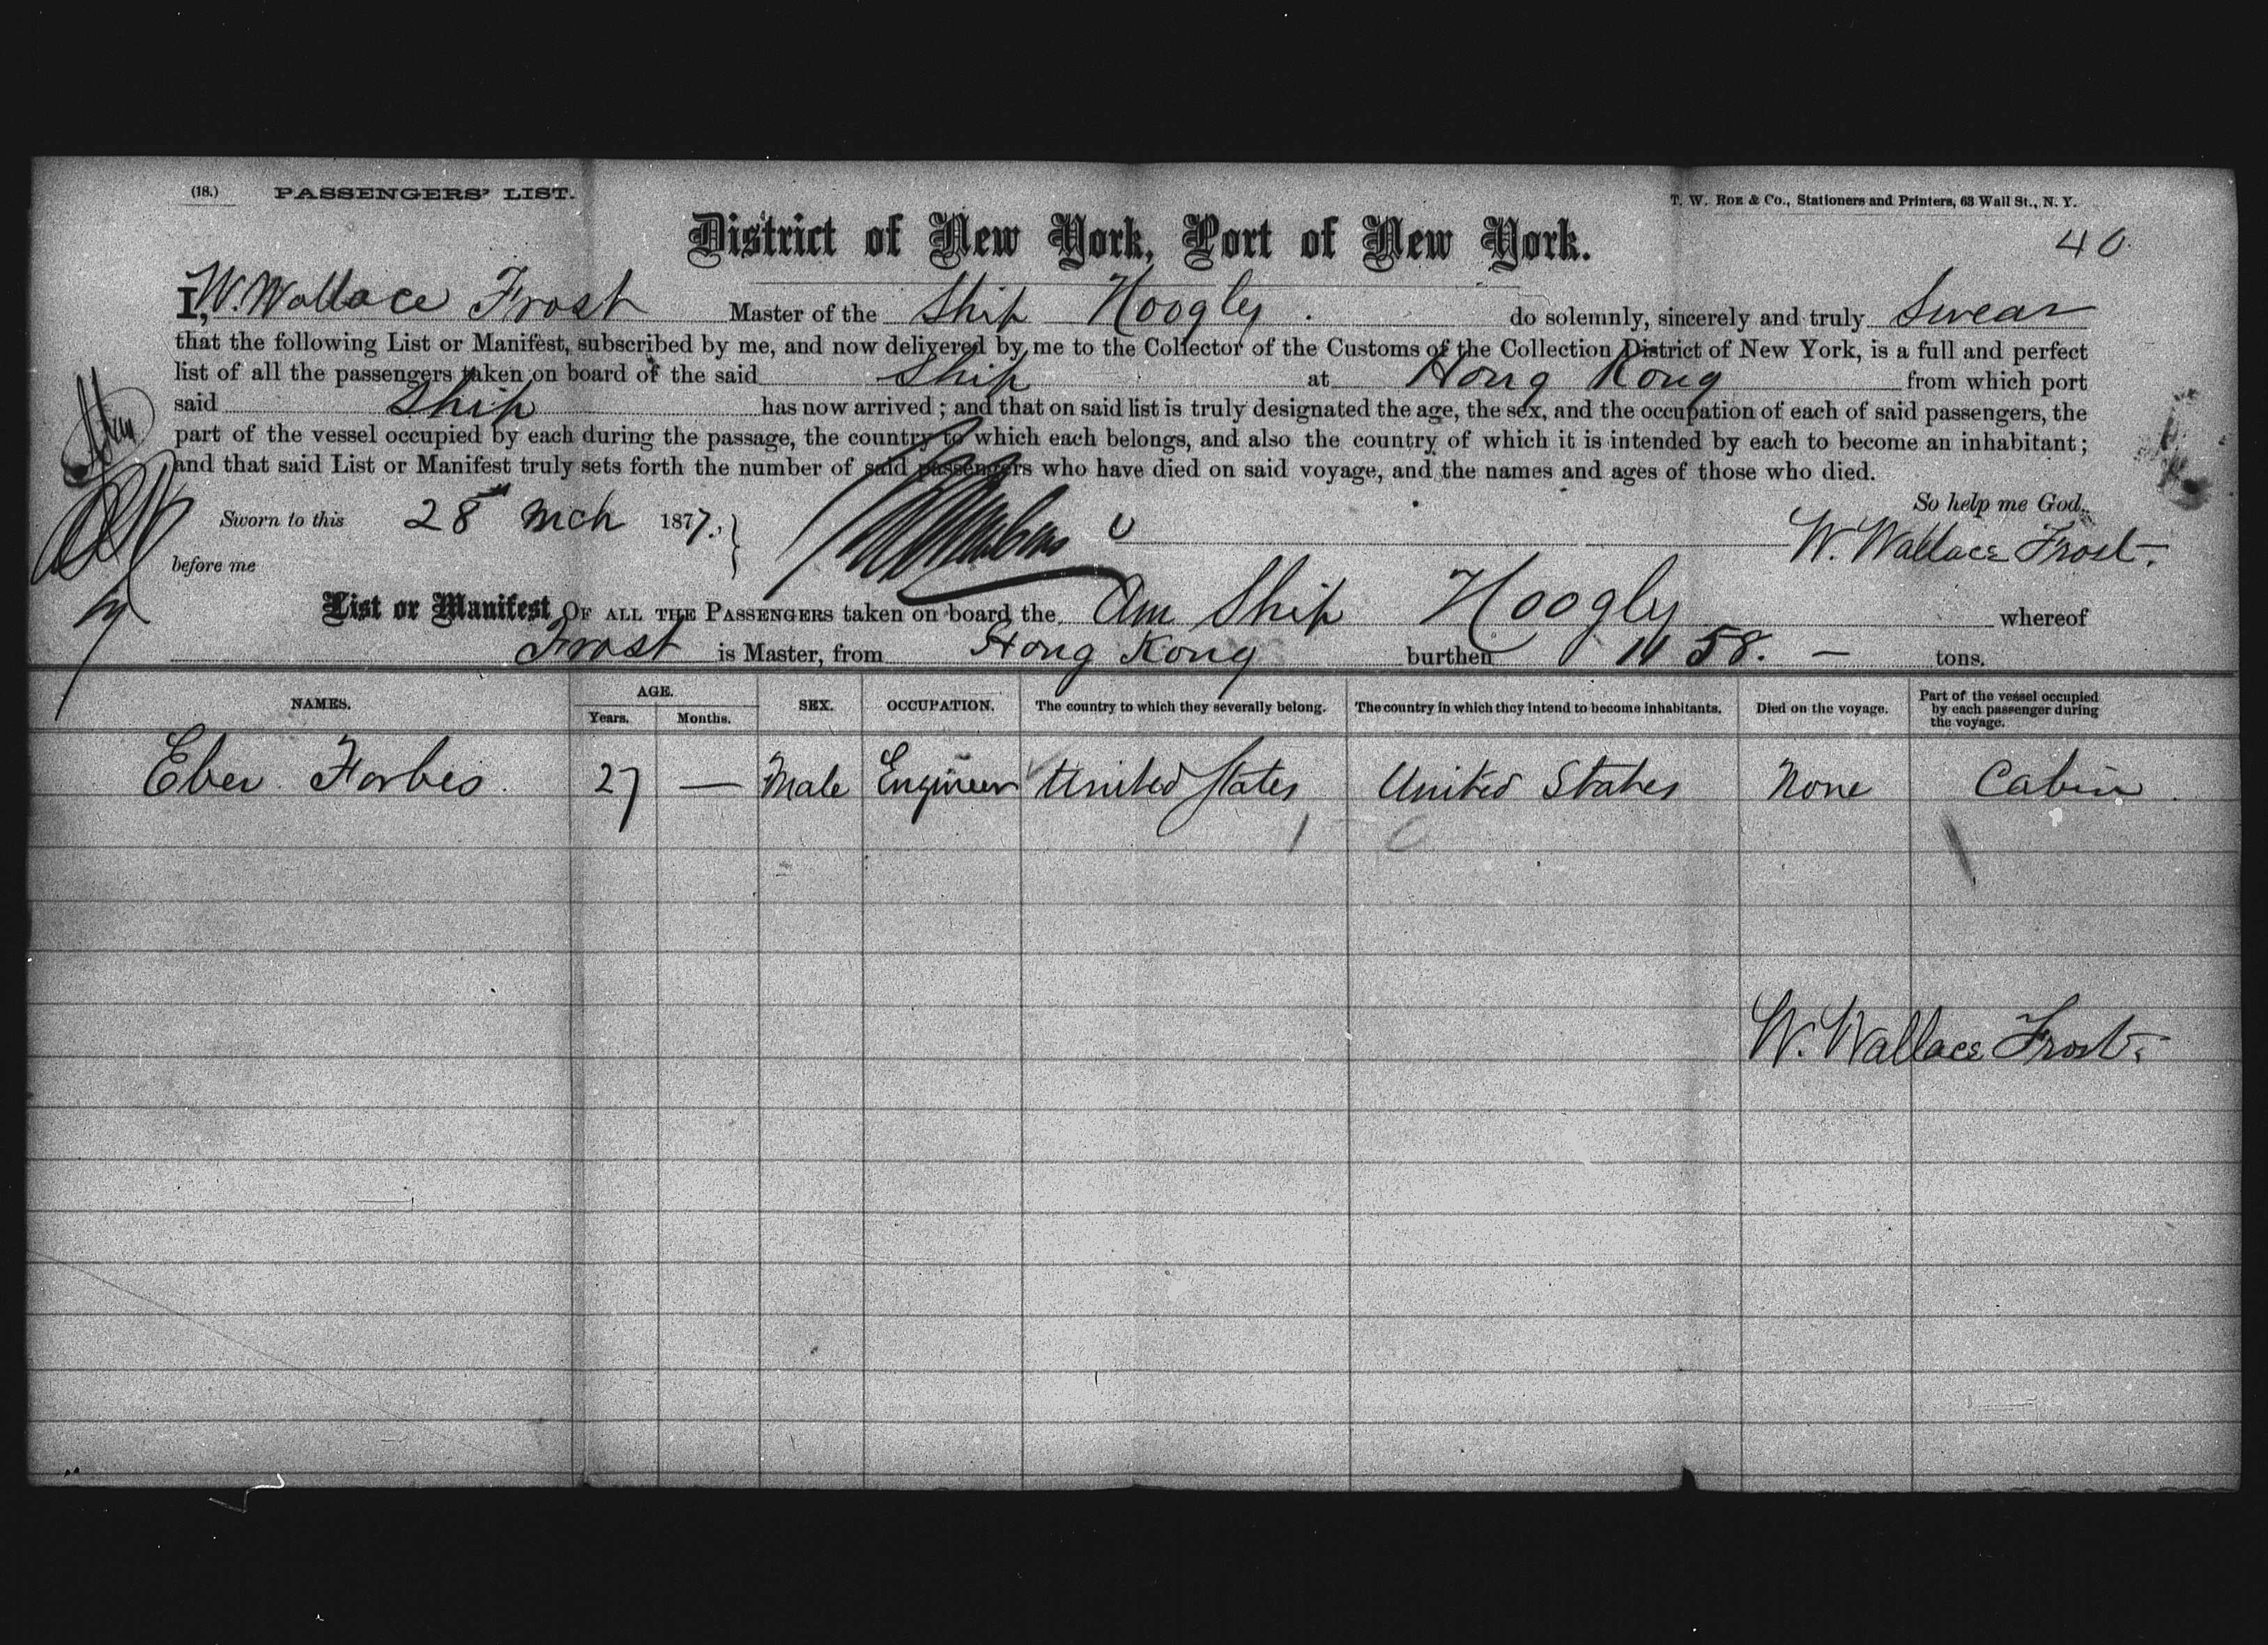 (18.) PASSENGERS' LIST.
T. W. ROE & Co., Stationers and Printers, 63 Wall St., N. Y.
District of New York, Port of New York.
40
I, W. Wallace Frost Master of the Ship Hoogly. do solemnly, sincerely and truly Swear
that the following List or Manifest, subscribed by me, and now delivered by me to the Collector of the Customs of the Collection District of New York, is a full and perfect
list of all the passengers taken on board of the said Ship at Hong Kong from which port
said Ship has now arrived; and that on said list is truly designated the age, the sex, and the occupation of each of said passengers, the
part of the vessel occupied by each during the passage, the country to which each belongs, and also the country of which it is intended by each to become an inhabitant;
and that said List or Manifest truly sets forth the number of said passengers who have died on said voyage, and the names and ages of those who died.
So help me God.
Sworn to this 28 Mch 1877.
W. Wallace Frost.
before me
List or Manifest OF ALL THE PASSENGERS taken on board the Am Ship Hoogly whereof
Frost is Master, from Hong Kong burthen 1458. — tons.
NAMES. AGE. Years. Months. SEX. OCCUPATION. The country to which they severally belong. The country in which they intend to become inhabitants. Died on the voyage. Part of the vessel occupied by each passenger during the voyage.
Eber Forbes. 27 — Male Engineer United States United States None Cabin
1 0
W. Wallace Frost.